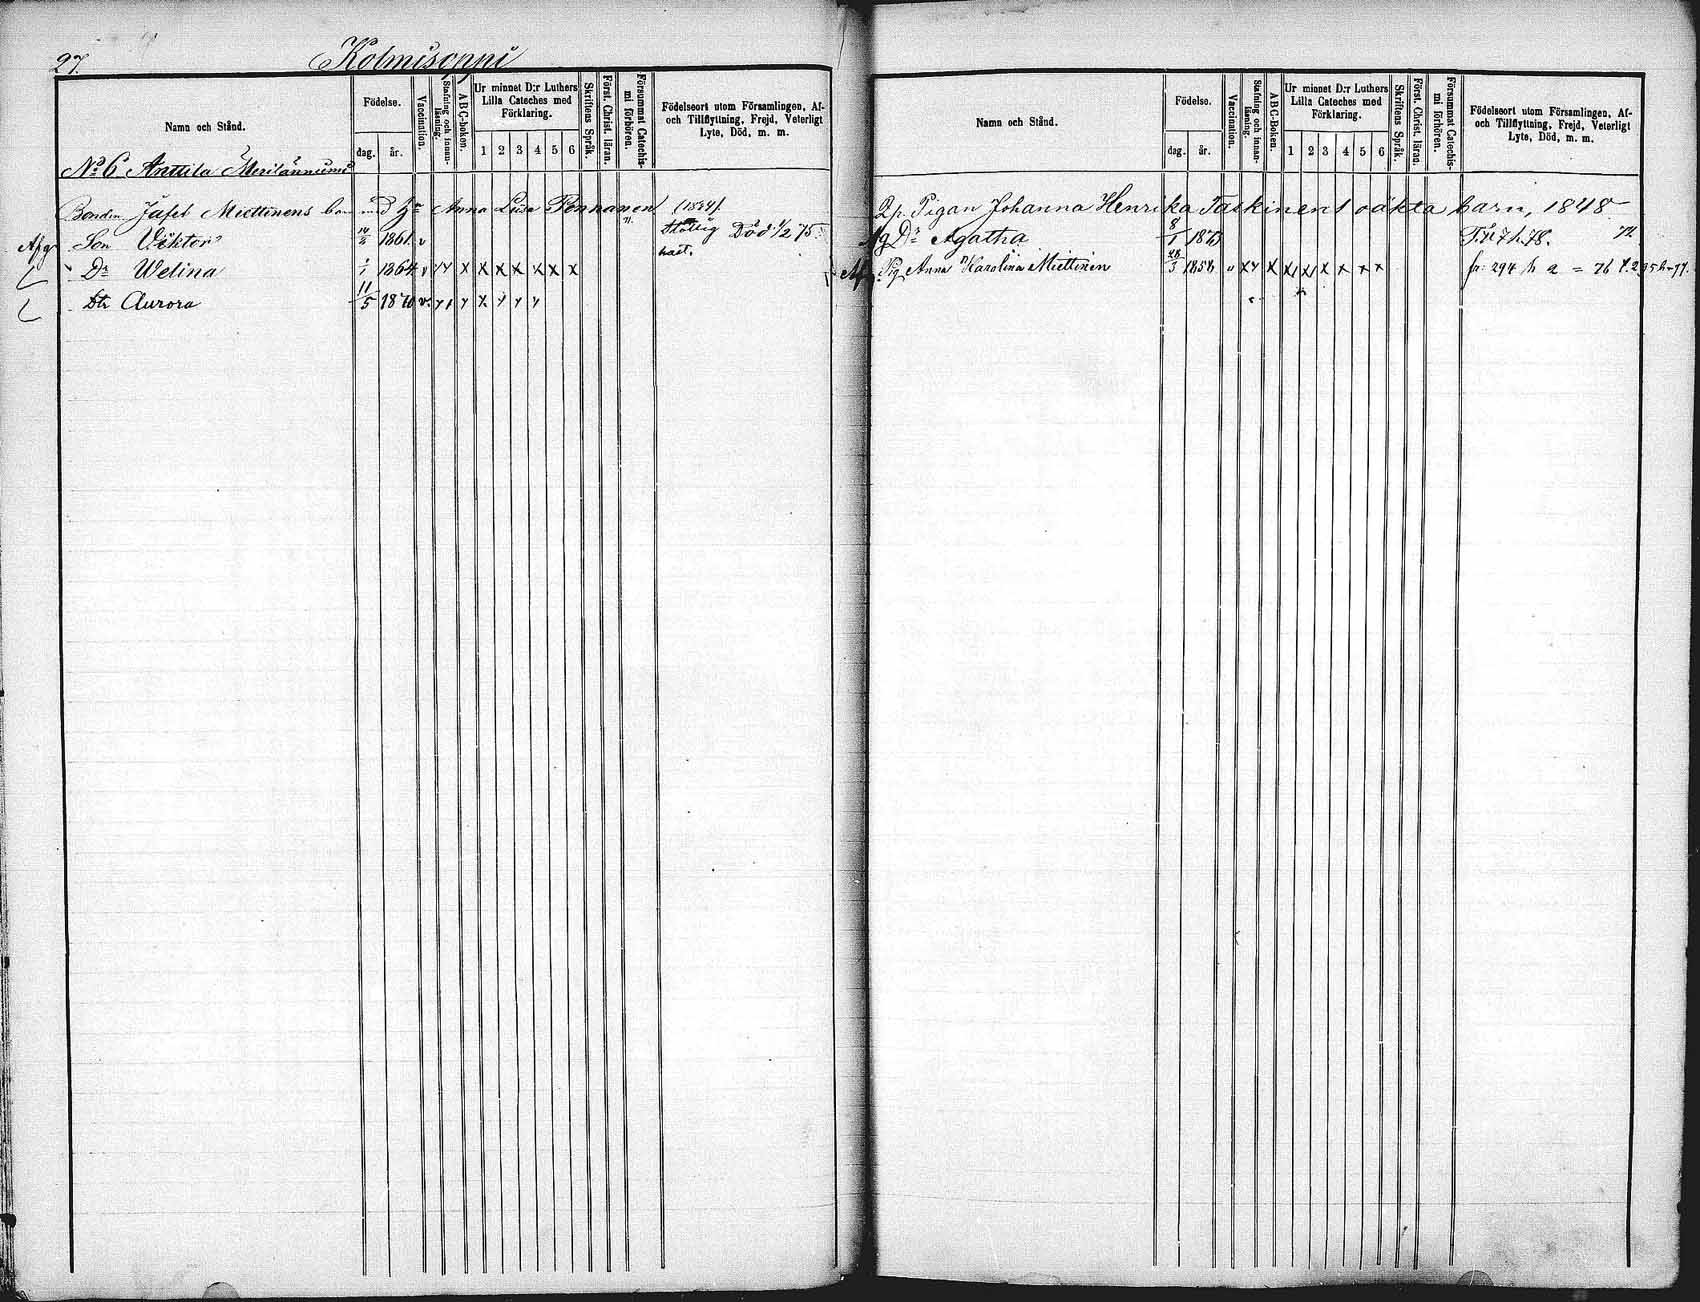 27. Kolmisoppi
Namn och Stånd. Födelse. dag. år. Vaccination. Stafning och innan-läsning. ABC-boken. Ur minnet D:r Luthers Lilla Cateches med Förklaring. 1 2 3 4 5 6 Skriftens Språk. Först. Christ. läran. Försummat Catechis-mi förhören. Födelseort utom Församlingen, Af- och Tillflyttning, Frejd, Veterligt Lyte, Död, m. m.
No 6 Anttila
Bonden Jafet Miettinens barn med Anna Lisa Pennanen (1834)
Afg Son Viktor 1861 v Död 1/2 75
Dr Welina 1/1 1864 v x x x x x x x x
Dtr Aurora 11/5 1870 v.
Namn och Stånd. Födelse. dag. år. Vaccination. Stafning och innan-läsning. ABC-Boken. Ur minnet D:r Luthers Lilla Cateches med Förklaring. 1 2 3 4 5 6 Skriftens Språk. Först. Christ. läran. Försummat Catechis-mi förhören. Födelseort utom Församlingen, Af- och Tillflyttning, Frejd, Veterligt Lyte, Död, m. m.
Pigan Johanna Henrika Taskinens oäkta barn, 1848
Dr Agatha 8/1
Pig. Anna Karolina Miettinen 28/3 1858 v x x x x x x x x fr. 294 h a = 76